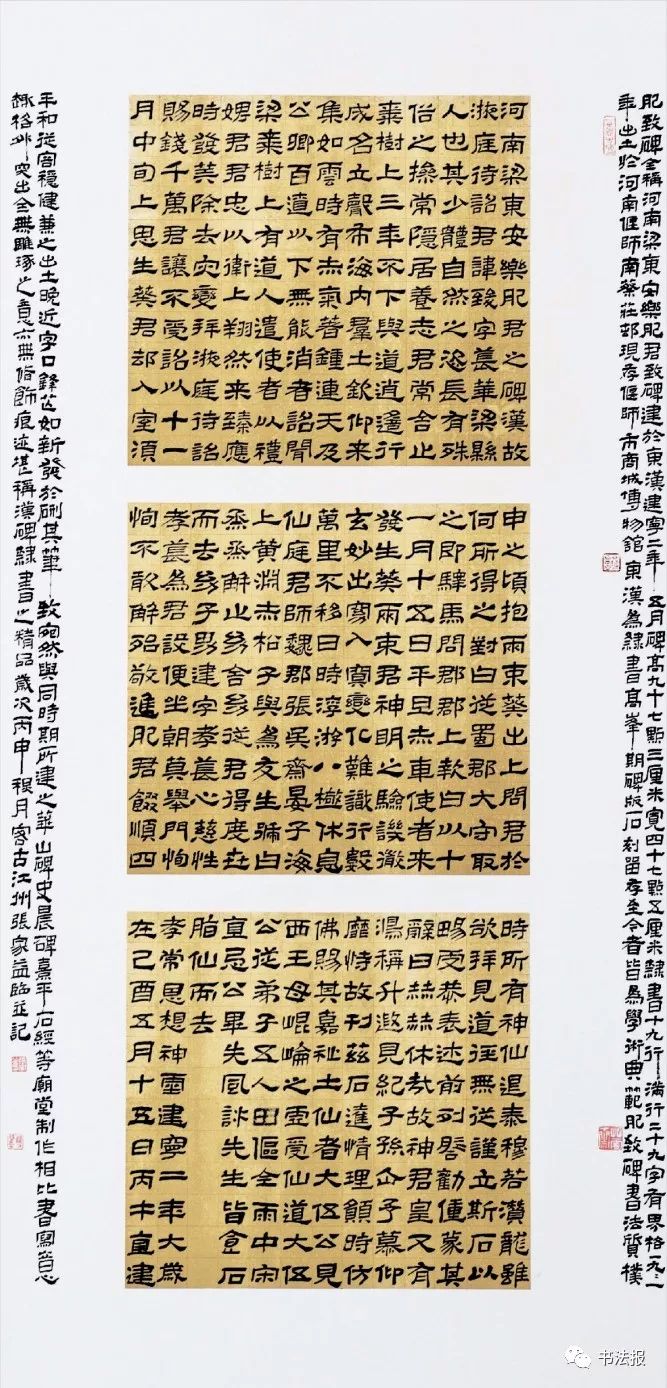 肥致碑全稱河南梁東安樂肥君致碑建於東漢建寧二年五月碑高九十七點三厘米寬四十七點五厘米隸書十九行滿行二十九字有界格一九九一
年出土於河南偃師南蔡莊邨現存偃師市商城博物館東漢為隸書高峯期碑版石刻留存至今者皆為學術典範肥致碑書法質樸
河南梁東安樂肥君之碑漢故
掖庭待詔君諱致字萇華梁縣
人也其少體自然之恣長有殊
俗之操常隱居養志君常舍止
棗樹上三年不下與道逍遙行
成名立聲布海內羣士欽仰来
集如雲時有赤氣著鍾連天及
公卿百遼以下無能消者詔聞
梁棗樹上有道人遣使者以禮
娉君君忠以衛上翔然来臻應
時發算除去灾變拜掖庭待詔
賜錢千萬君讓不受詔以十一
月中旬上思生葵君却入室須
申之頃抱兩束葵出上問君於
何所得之對曰從蜀郡大守取
之即驛馬問郡郡上報曰以十
一月十五日平旦赤車使者来
發生葵兩束君神明之驗譏徹
玄妙出窈入冥變化難識行數
萬里不移日時浮游八極休息
仙庭君師魏郡張吳齋晏子海
上黄淵赤松子與為友生號曰
烝烝解止幼舍幼從君得度世
而去幼子男建字孝萇心慈性
孝萇為君設便坐朝莫舉門恂
恂不敢解殆敬進肥君餟順四
時所有神仙退泰穆若潛龍雖
欲拜見道徑無從謹立斯石以
暢虔恭表述前列啓勸僮蒙其
辭曰赫赫休哉故神君皇又有
鴻稱升遐見紀子孫企予慕仰
靡恃故刊茲石達情理願時仿
佛賜其嘉祉土仙者大伍公見
西王母崐崘之虛受仙道大伍
公從弟子五人田傴全雨中宋
直忌公畢先風許先生皆食石
脂仙而去
孝常思想神靈建寧二年大歲
在己酉五月十五日丙午直建
平和從容穩健兼之出土晚近字口鋒芒如新發於硎其筆致宛然與同時期所建之華山碑史晨碑熹平石經等廟堂制作相比書寫意
趣格外突出全無雕琢之意亦無修飾痕迹堪稱漢碑隸書之精品歲次丙申稷月客古江州張家益臨並記
书法报